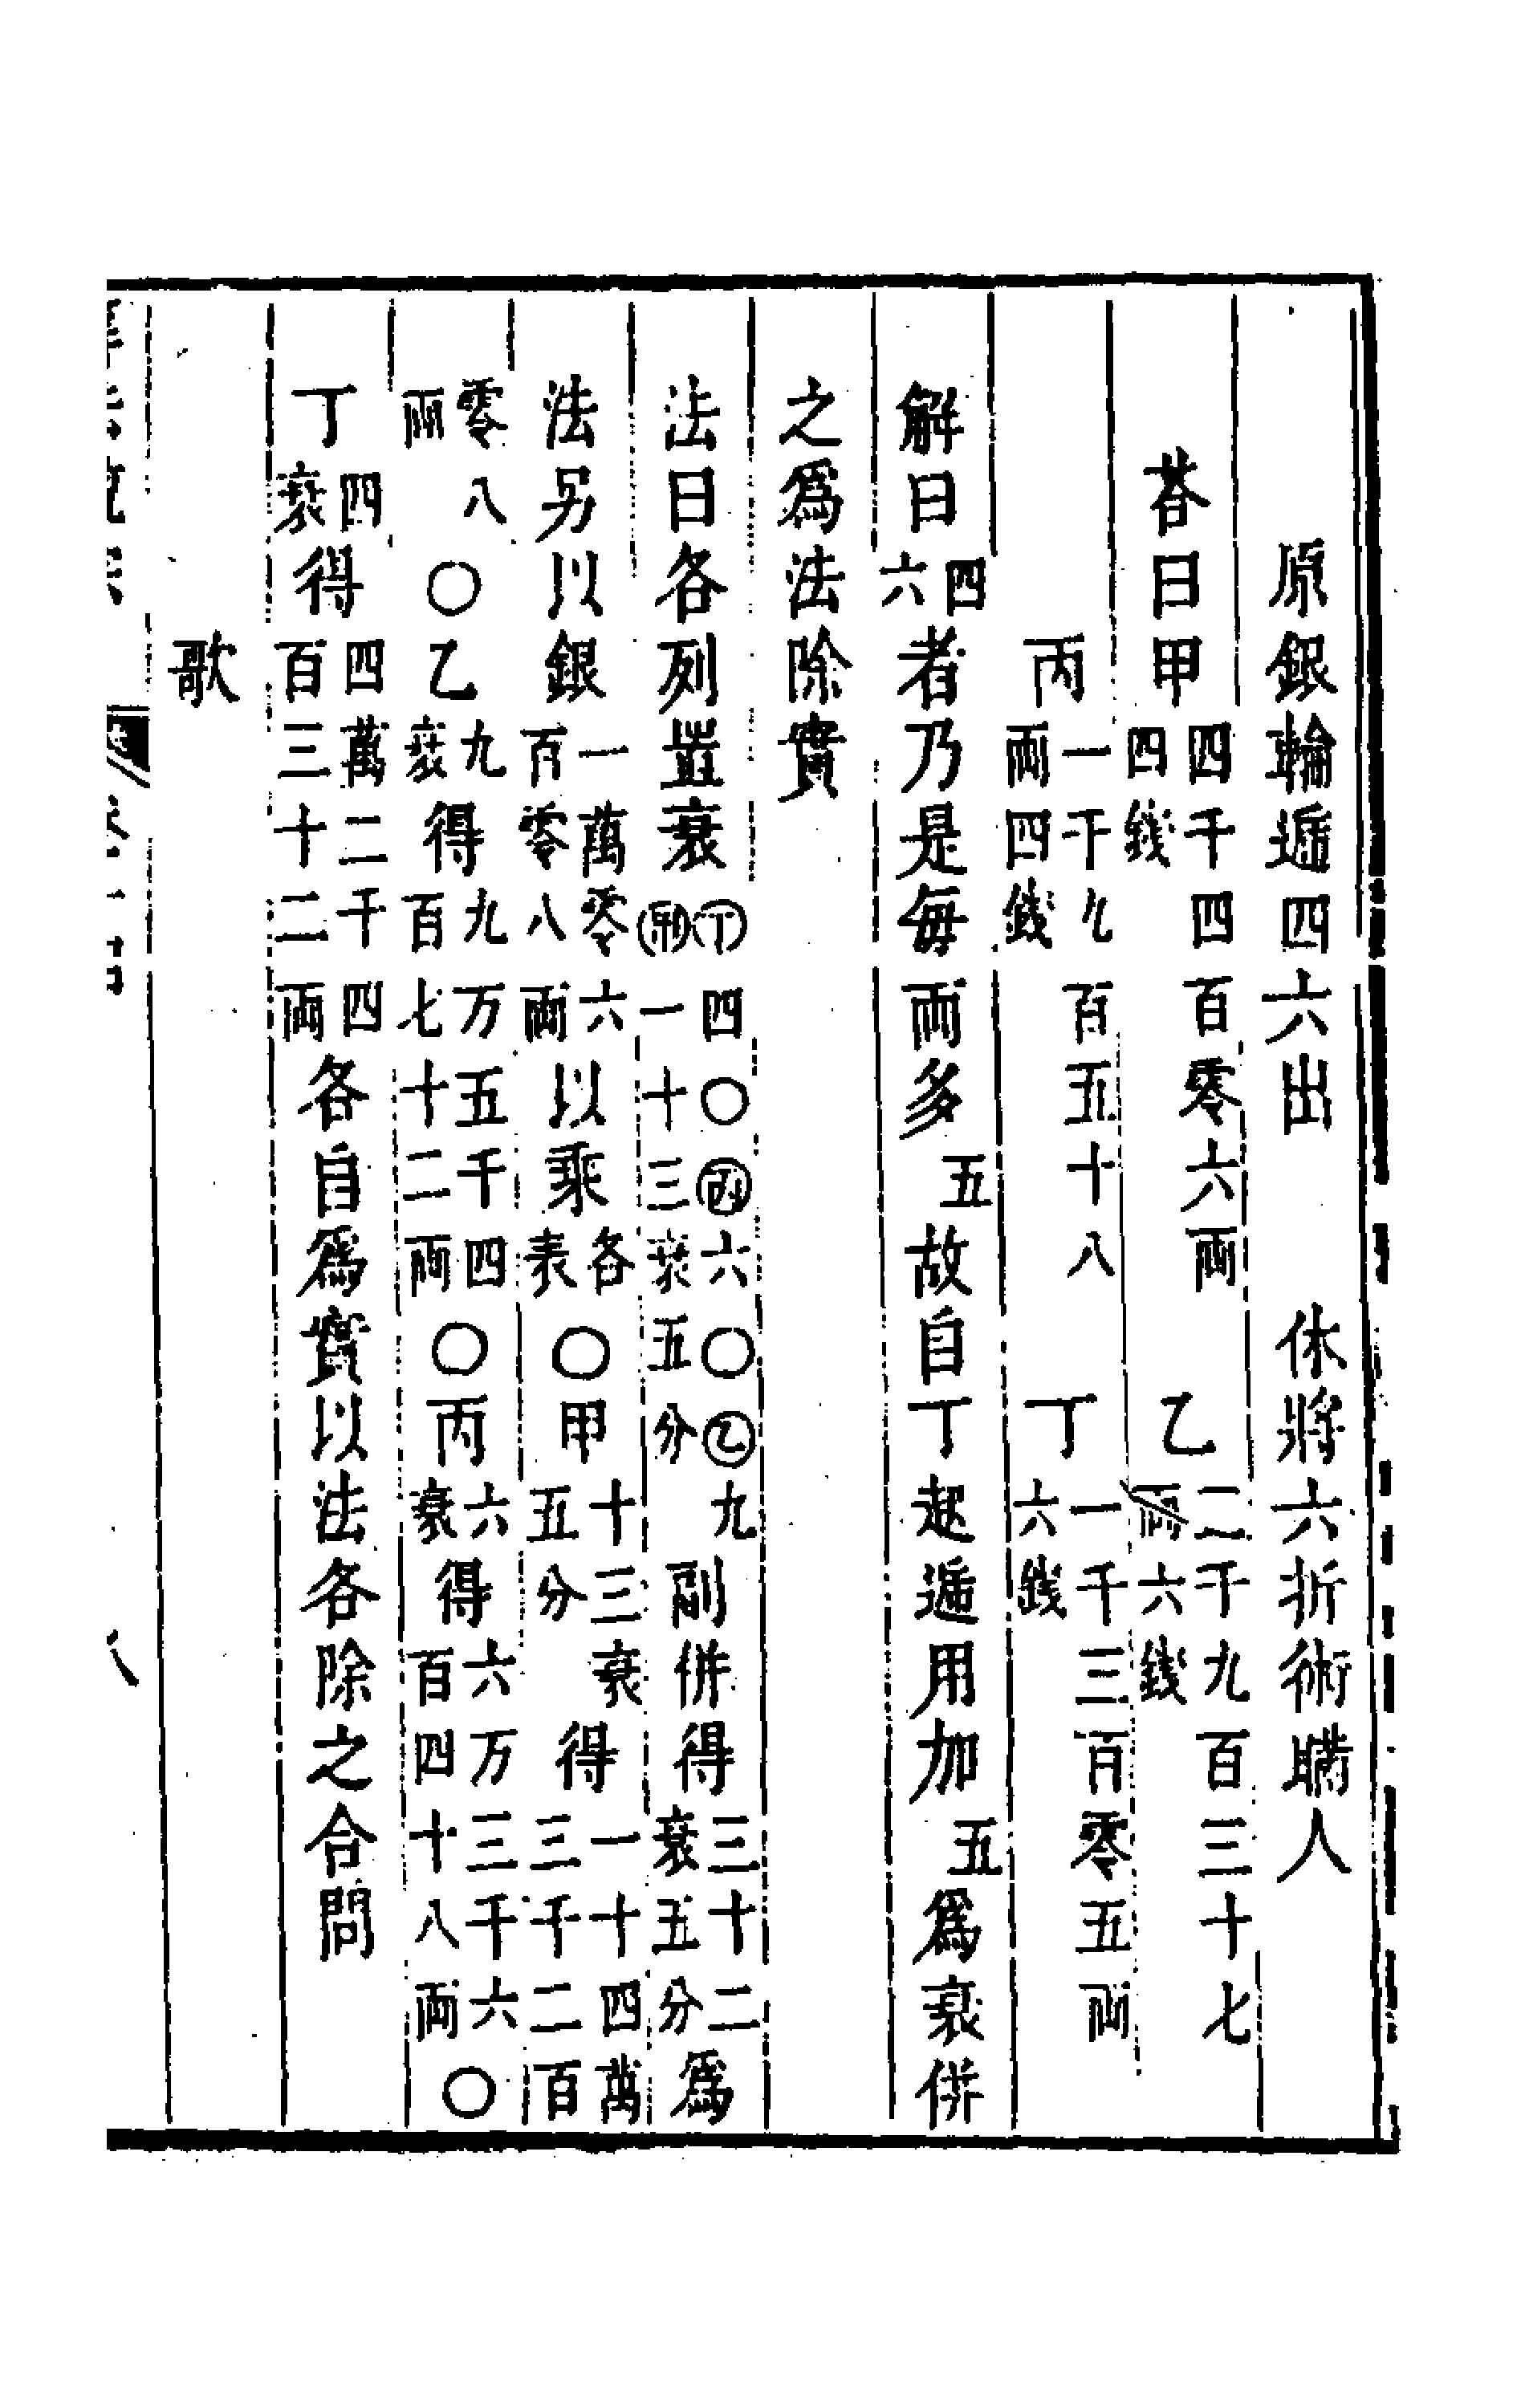 原銀輪逓四六出　休將六折術瞞人
荅曰甲四千四百零六両四錢　乙二千九百三十七両六錢
丙一千九百五十八両四錢　丁一千三百零五両六錢
解曰四六者乃是每両多五故自丁起逓用加五爲衰併
之爲法除實
法曰各列置衰丁四〇丙六〇乙九甲一十三衰五分副併得三十二衰五分爲
法另以銀一萬零六百零八両以乘各表〇甲十三衰五分得一十四萬三千二百
零八両〇乙九衰得九万五千四百七十二両〇丙六衰得六万三千六百四十八両〇
丁四衰得四萬二千四百三十二両各自爲實以法各除之合問
歌